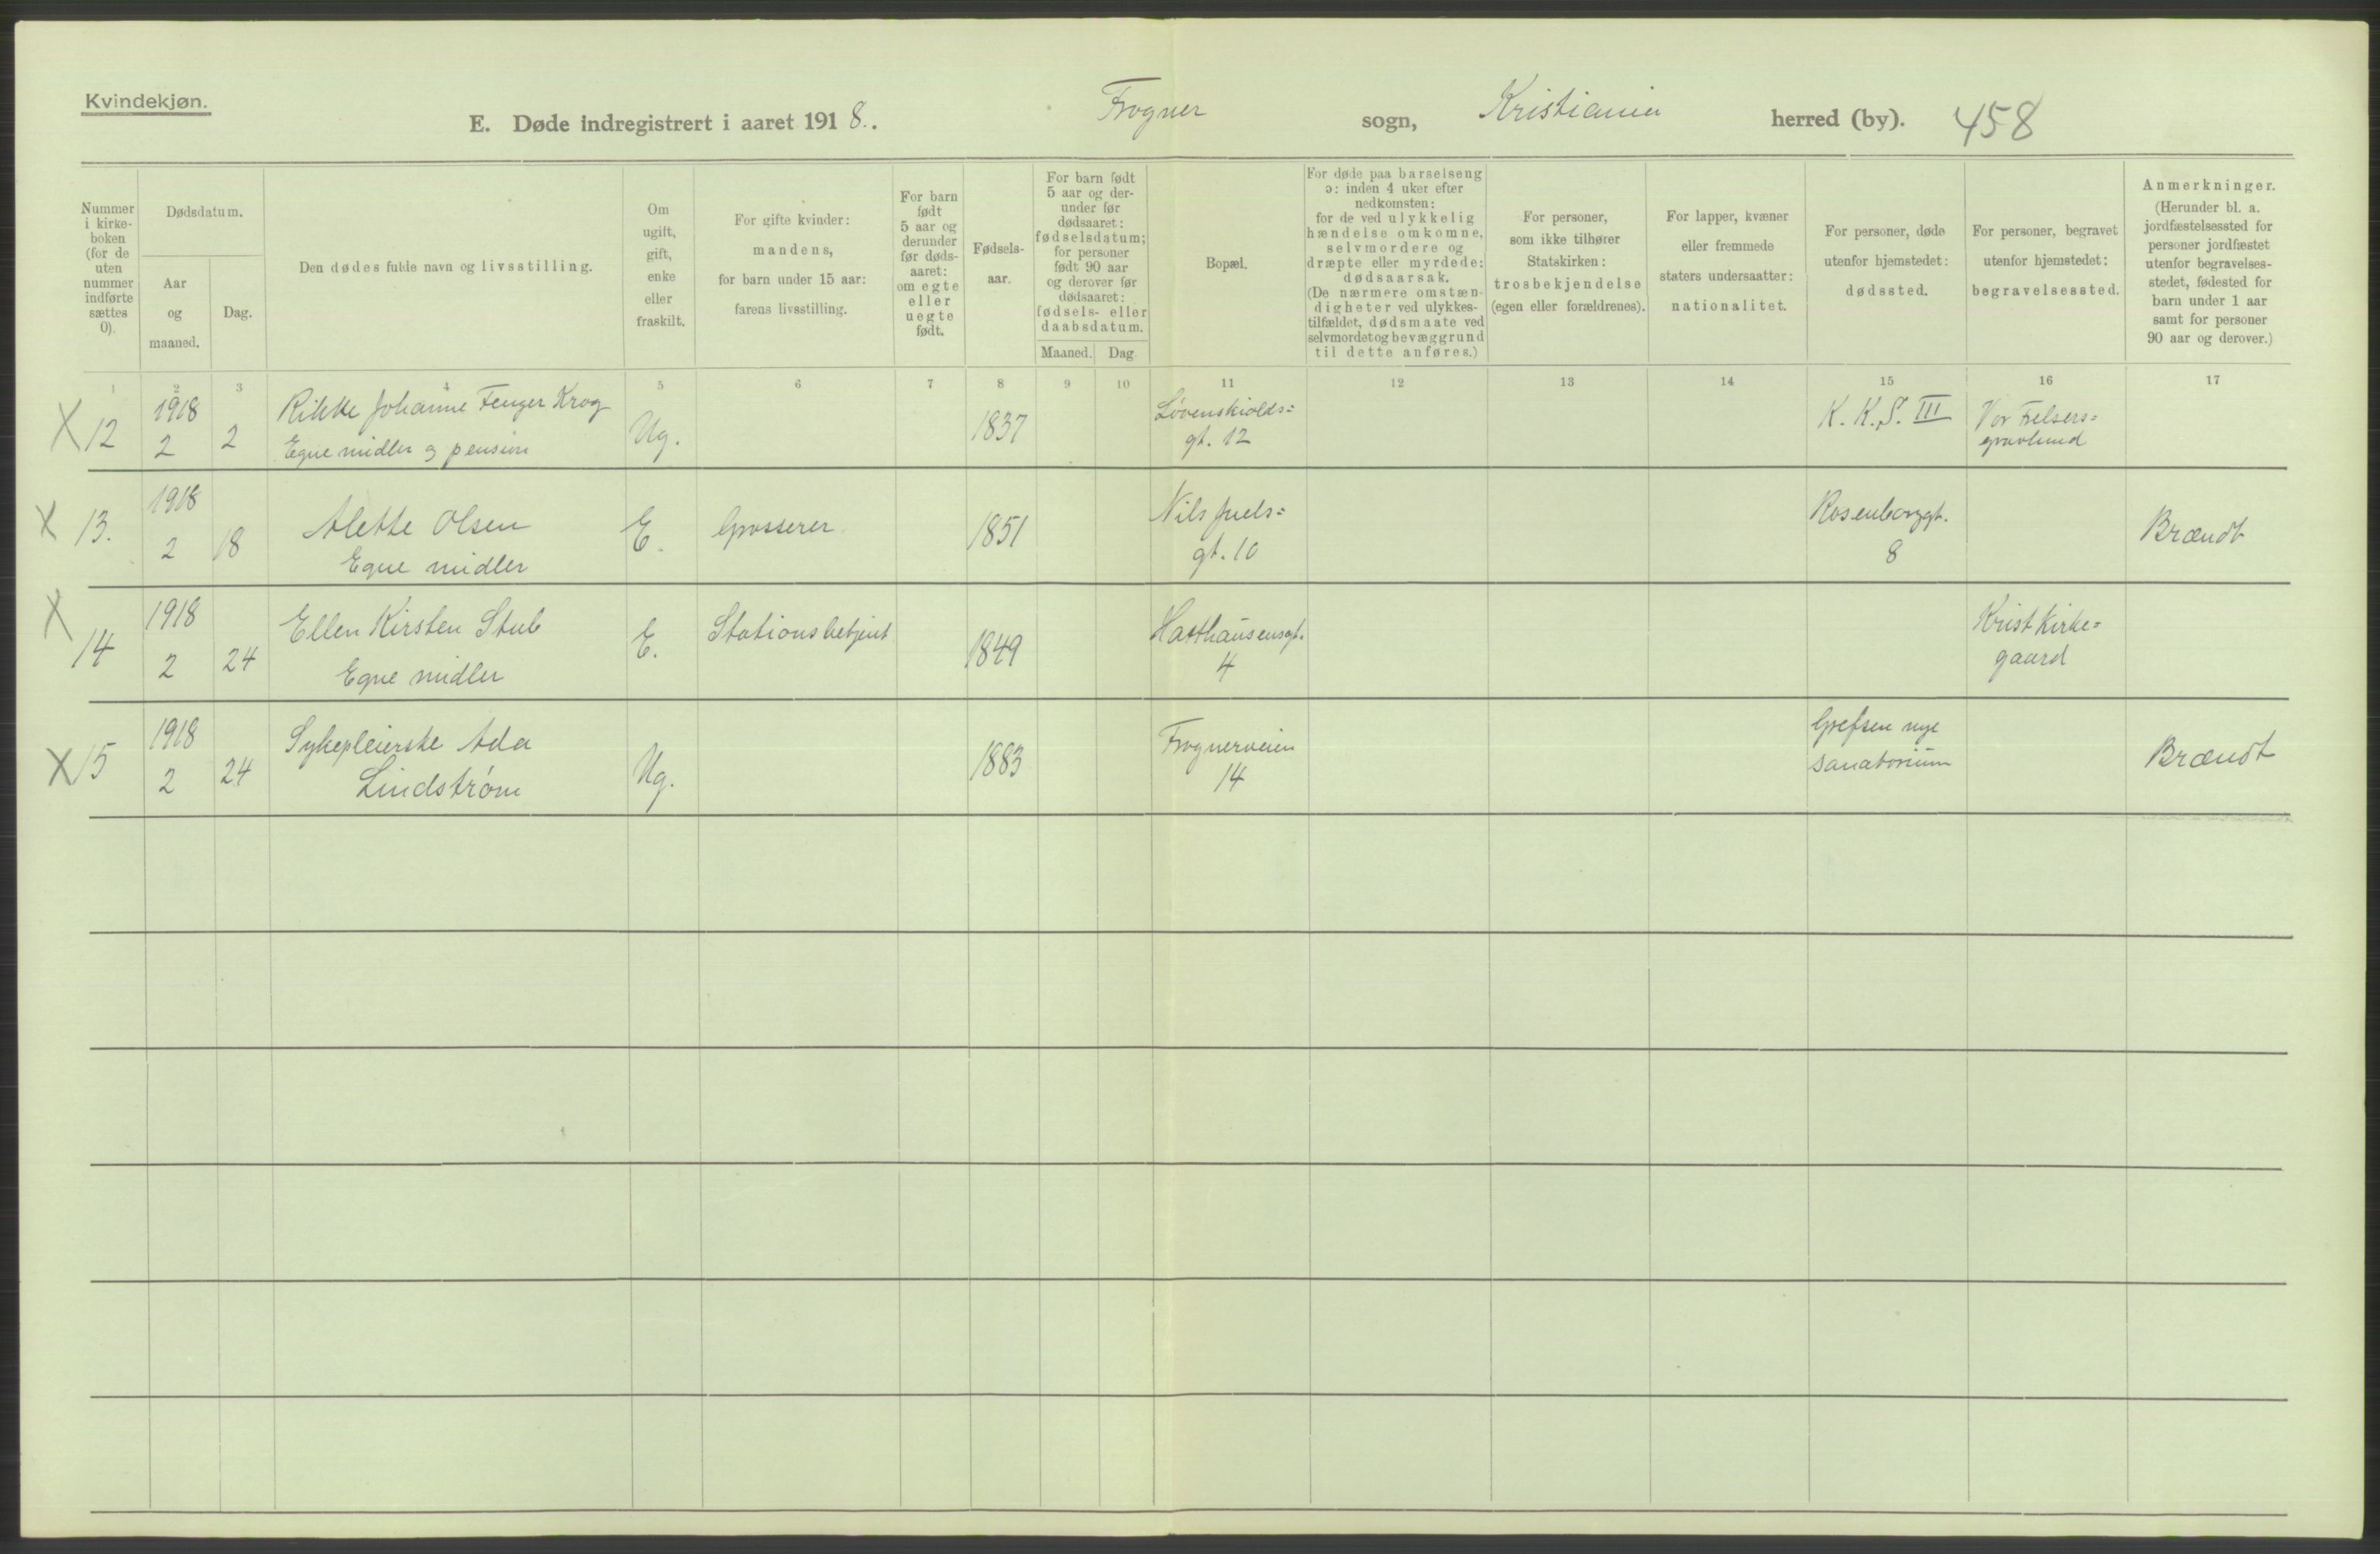 Kvindekjøn.
E. Døde indregistrert i aaret 1918.. Frogner sogn, Kristiania herred (by). 458
Nummer i kirke-boken (for de uten nummer indførte sættes 0).
Dødsdatum.
Aar og maaned.
Dag.
Den dødes fulde navn og livsstilling.
Om ugift, gift, enke eller fraskilt.
For gifte kvinder: mandens, for barn under 15 aar: farens livsstilling.
For barn født 5 aar og derunder før døds-aaret: om egte eller uegte født.
Fødsels-aar.
For barn født 5 aar og der-under før dødsaaret: fødselsdatum; for personer født 90 aar og derover før dødsaaret: fødsels- eller daabsdatum.
Maaned. Dag
Bopæl.
For døde paa barselseng ɔ: inden 4 uker efter nedkomsten: for de ved ulykkelig hændelse omkomne, selvmordere og dræpte eller myrdede: dødsaarsak. (De nærmere omstæn-digheter ved ulykkes-tilfældet, dødsmaate ved selvmordet og bevæggrund til dette anføres.)
For personer, som ikke tilhører Statskirken: trosbekjendelse (egen eller forældrenes).
For lapper, kvæner eller fremmede staters undersaatter: nationalitet.
For personer, døde utenfor hjemstedet: dødssted.
For personer, begravet utenfor hjemstedet: begravelsessted.
Anmerkninger. (Herunder bl. a. jordfæstelsessted for personer jordfæstet utenfor begravelses-stedet, fødested for barn under 1 aar samt for personer 90 aar og derover.)
1 2 3 4 5 6 7 8 9 10 11 12 13 14 15 16 17
X 12 1918 2 2 Rikke Johanne Fenger Krog Ug. 1837 Løvenskiolds= K. K. S. III Vor Frelsers=
Egne midler og pension gt. 12 gravlund
X 13. 1918 2 18 Alette Olsen E. Grosserer 1851 Nils Juels= Rosenborggt. Brændt
Egne midler gt. 10 8
X 14 1918 2 24 Ellen Kirsten Stub E. Stationsbetjent 1849 Haxthausensgt. Krist Kirke=
Egne midler 4 gaard
X 15 1918 2 24 Sykepleierske Ada Ug. 1883 Frognerveien Grefsen nye Brændt
Lindstrøm 14 sanatorium